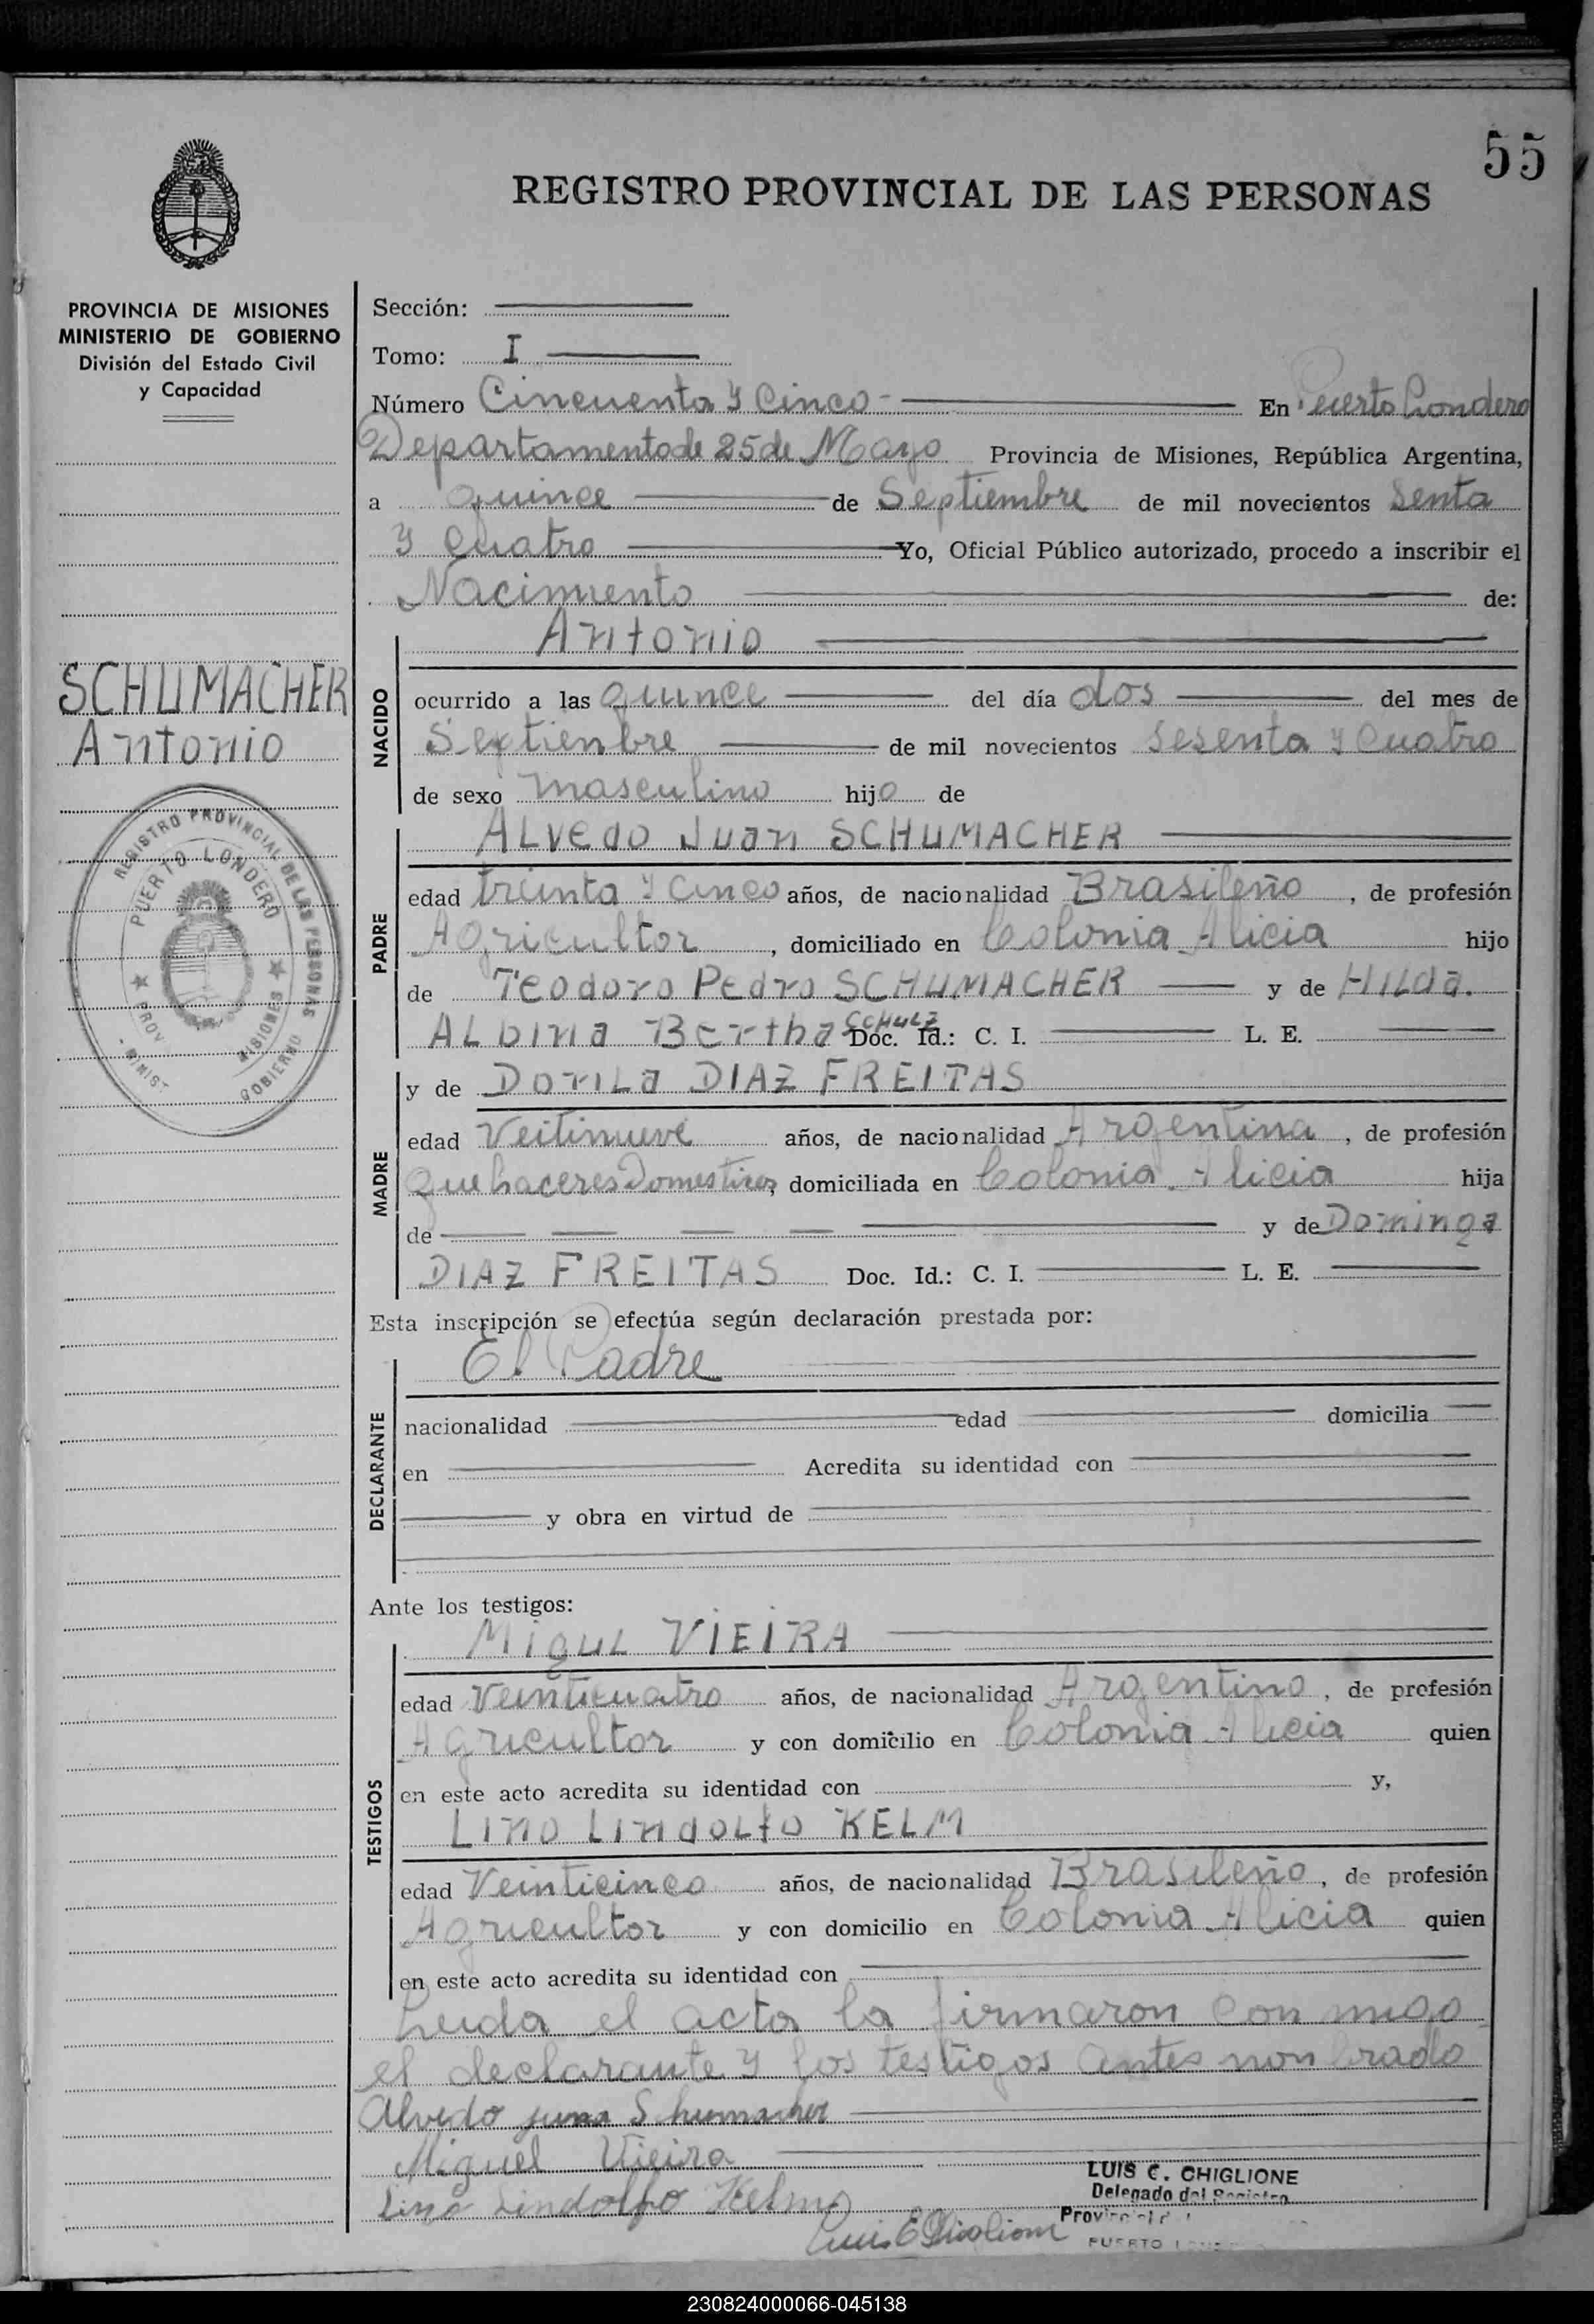 55
REGISTRO PROVINCIAL DE LAS PERSONAS
PROVINCIA DE MISIONES
MINISTERIO DE GOBIERNO
División del Estado Civil
y Capacidad
SCHUMACHER
Antonio
REGISTRO PROVINCIAL DE LAS PERSONAS
PUERTO LONDERO
PROV MISIONES
MINIST GOBIERNO
Sección:
Tomo: I
Número Cincuenta y Cinco - En Puerto Londero
Departamento de 25 de Mayo Provincia de Misiones, República Argentina,
a quince de Septiembre de mil novecientos Senta
y Cuatro Yo, Oficial Público autorizado, procedo a inscribir el
Nacimiento de:
Antonio
NACIDO
ocurrido a las quince del día dos del mes de
Septienbre de mil novecientos sesenta y Cuatro
de sexo masculino hijo de
ALvedo Juan SCHUMACHER
PADRE
edad triinta y Cinco años, de nacionalidad Brasileño, de profesión
Agricultor, domiciliado en Colonia Alicia hijo
de Teodoro Pedro SCHUMACHER y de HILda.
ALbina Bertha SCHULZ Doc. Id.: C. I. L. E.
y de DoriLa DIAZ FREITAS
MADRE
edad Veitinueve años, de nacionalidad Argentina, de profesión
Quehaceres Domesticos, domiciliada en Colonia Alicia hija
de y de Dominga
DIAZ FREITAS Doc. Id.: C. I. L. E.
Esta inscripción se efectúa según declaración prestada por:
El Padre
DECLARANTE
nacionalidad edad domicilia
en Acredita su identidad con
y obra en virtud de
Ante los testigos:
MiguL VIEIRA
TESTIGOS
edad Veinticuatro años, de nacionalidad Argentino, de profesión
Agricultor y con domicilio en Colonia Alicia quien
en este acto acredita su identidad con y,
Lino LindoLfo KELM
edad Veinticinco años, de nacionalidad Brasileño, de profesión
Agricultor y con domicilio en Colonia Alicia quien
en este acto acredita su identidad con
Leida el acta la firmaron con migo
el declarante y los testigos antes nonbrado
Alvedo juna Schumacher
Miguel Vieira
Lino Lindolfo Kelm
LUIS C. CHIGLIONE
Delegado del Registro
Provincial
PUERTO
230824000066-045138